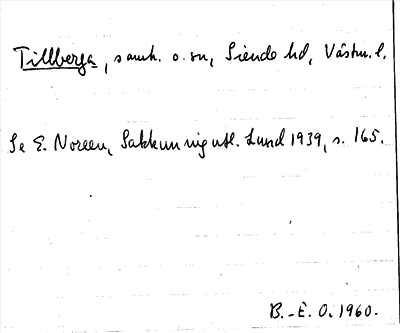 Tillberga, samh. o. sn, Siende hd, Västm. l.
Se E. Noreen, Sakkunnigutl. Lund 1939, s. 165.
B.-E. O. 1960.